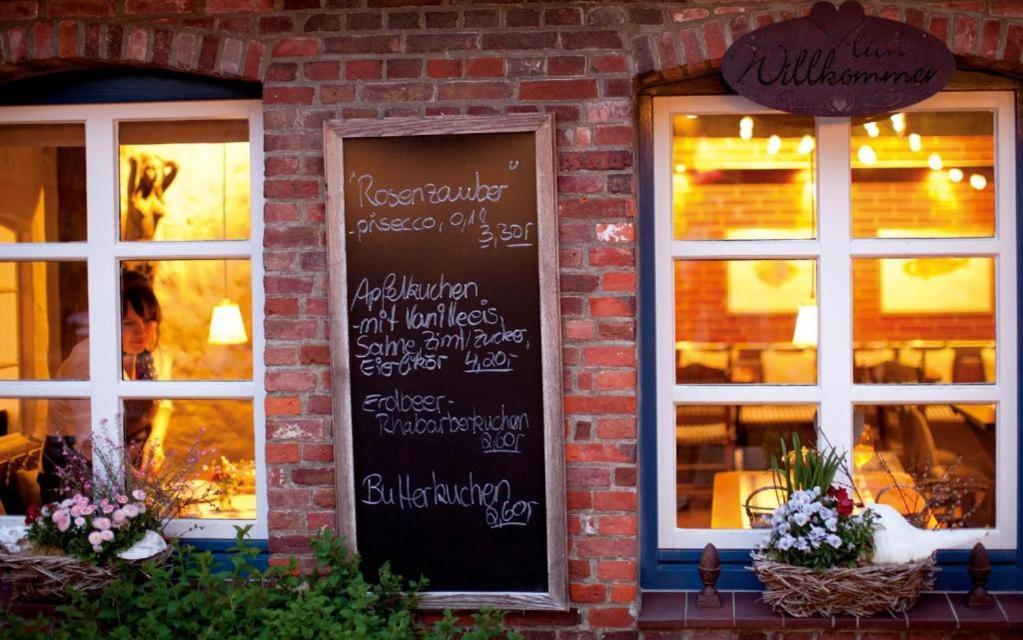 lich
Willkommen
"Rosenzauber"
-pisecco, 0,1l
3,30,-
Apfelkuchen
-mit Vanilleeis,
Sahne, Zimt/Zucker,
Eierlikör 4,20,-
Erdbeer-
Rhabarberkuchen
2,60,-
Butterkuchen
2,60,-